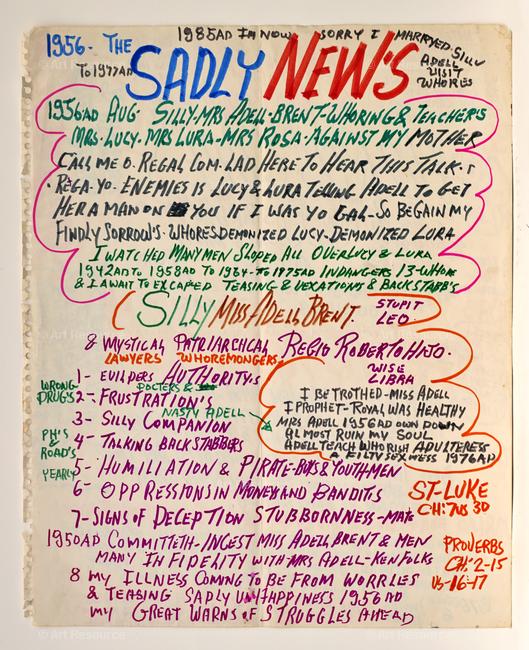 1956- THE
1985AD IM NOW SORRY I MARRYED SILLY
To 1977AD
SADLY NEW'S
ADELL
VISIT
WHORES
1956AD AUG- SILLY-MRS ADELL-BRENT-WHORING & TEACHER'S
MRS-LUCY-MRS LURA-MRS ROSA-AGAINST MY MOTHER
CALL ME O. REGAL COM. LAD HERE TO HEAR THIS TALK.
REGA-YO-ENEMIES IS LUCY & LURA TELLING ADELL TO GET
HER A MAN ON YOU IF I WAS YO GAL-SO BEGAIN MY
FINDLY SORROW'S-WHORES DEMONIZED LUCY-DEMONIZED LURA
I WATCHED MANY MEN SLOPED ALL OVER LUCY & LURA
1942AD TO 1958AD TO 1964-TO 1975AD IN DANGERS 13-WHORE
& I AWAIT TO EXCAPED TEASING & VEXATIONS & BACKSTABB'S
SILLY MISS ADELL BRENT.
STUPIT
LEO
8 MYSTICAL PATRIARCHCAL REGIO ROBERTO HIJO.
LAWYERS WHOREMONGERS
WISE
LIBRA
1- EVILDERS AUTHORITY.S
WRONG
DRUG'S
DOCTERS &
2- FRUSTRATION'S
NASTY ADELL
3- SILLY COMPANION
PH'S &
ROAD'S
YEARLY
4- TALKING BACKSTABBERS
I BE TROTHED-MISS ADELL
I PROPHET-ROYAL WAS HEALTHY
MRS ADELL 1956AD OWN DOWN
ALMOST RUIN MY SOUL
ADELL TEACH WHORISH ADULTERESS
& FILTY SEXNESS 1976AD
5- HUMILIATION & PIRATE-BOYS & YOUTHMEN
6- OPPRESSIONS IN MONEY AND BANDITS
ST-LUKE
CH:7VS 30
7-SIGNS OF DECEPTION STUBBORNNESS-MATE
1950AD COMMITTETH-INCEST MISS ADELL BRENT & MEN
MANY INFIDELITY WITH MRS ADELL-KENFOLKS
PROVERBS
CH:2-15
VS-16-17
8 MY ILLNESS COMING TO BE FROM WORRIES
& TEASING SADLY UNHAPPINESS 1956AD
MY GREAT WARNS OF STRUGGLES AHEAD
© Art Resource